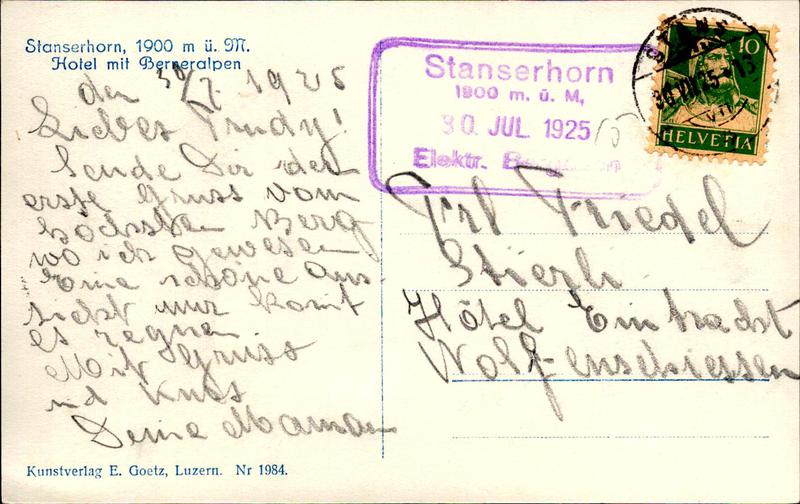 Stanserhorn, 1900 m ü. M.
Hotel mit Berneralpen
den 30/7. 1925
Liebes Trudy!
Sende Dir den
erste Gruss vom
höchsten Berg
wo ich gewesen
Eine schöne Aus
sicht nur komt
es regnen
Mit Gruss
und Kuss
Deine Maman
Kunstverlag E. Goetz, Luzern. Nr 1984.
Stanserhorn
1900 m. ü. M,
30. JUL. 1925
Elektr.
STANS
30.VII.25
10
HELVETIA
Frl Friedel
Stierli
Hôtel Eintracht
Wolfenschiessen